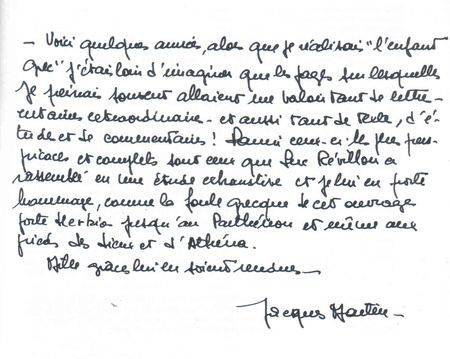 — Voici quelques années, alors que je réalisais "l'enfant
grec" j'étais loin d'imaginer que les pages sur lesquelles
je peinais souvent allaient me valoir tant de lettres
extraordinaires - et aussi tant de textes, d'é-
tudes et de commentaires ! Parmi ceux-ci - les plus pers-
picaces et complets sont ceux que Luc Révillon a
rassemblé en une étude exhaustive et je lui en porte
hommage, comme la foule grecque de cet ouvrage
porte Herkios jusqu'au Parthénon et même aux
pieds des dieux et d'Athéna.
Mille grâces lui en soient rendues —
Jacques Martin —